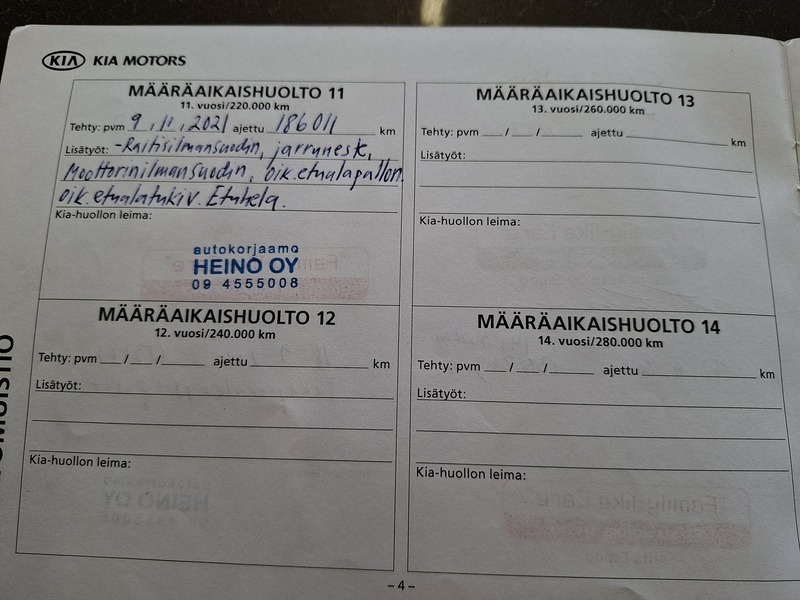 KIA KIA MOTORS
MÄÄRÄAIKAISHUOLTO 11
11. vuosi/220.000 km
Tehty: pvm 9 . 11 . 2021 ajettu 186011 km
Lisätyöt: -Raitisilmansuodin, jarruneste,
Moottorinilmansuodin, oik.etualapallon.
oik.etualatukiv. Etuhela.
Kia-huollon leima:
autokorjaamo
HEINO OY
09 4555008
MÄÄRÄAIKAISHUOLTO 12
12. vuosi/240.000 km
Tehty: pvm / / ajettu km
Lisätyöt:
Kia-huollon leima:
MÄÄRÄAIKAISHUOLTO 13
13. vuosi/260.000 km
Tehty: pvm / / ajettu km
Lisätyöt:
Kia-huollon leima:
MÄÄRÄAIKAISHUOLTO 14
14. vuosi/280.000 km
Tehty: pvm / / ajettu km
Lisätyöt:
Kia-huollon leima:
– 4 –